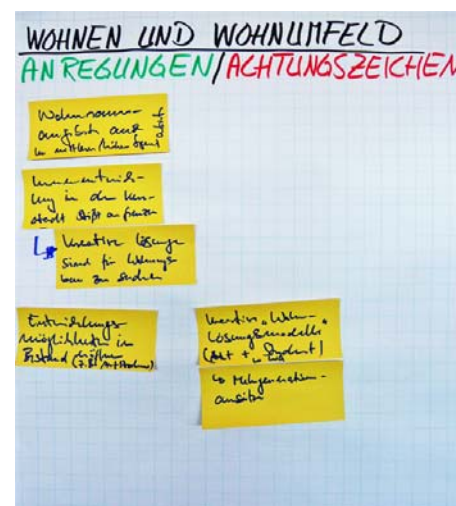 WOHNEN UND WOHNUMFELD
ANREGUNGEN/ACHTUNGSZEICHEN
Wohnraum-
angebote auch
im mittleren/hohen Segment
Innenentwick-
lung in der Kern-
stadt stößt an Grenzen
kreative Lösungen
sind für Wohnungs-
bau zu suchen
Entwicklungs-
möglichkeiten im
Bestand
kreative "Wohn-
Lösungsmodelle"
(Alt + Student)
↳ Mehrgeneration-
ansätze